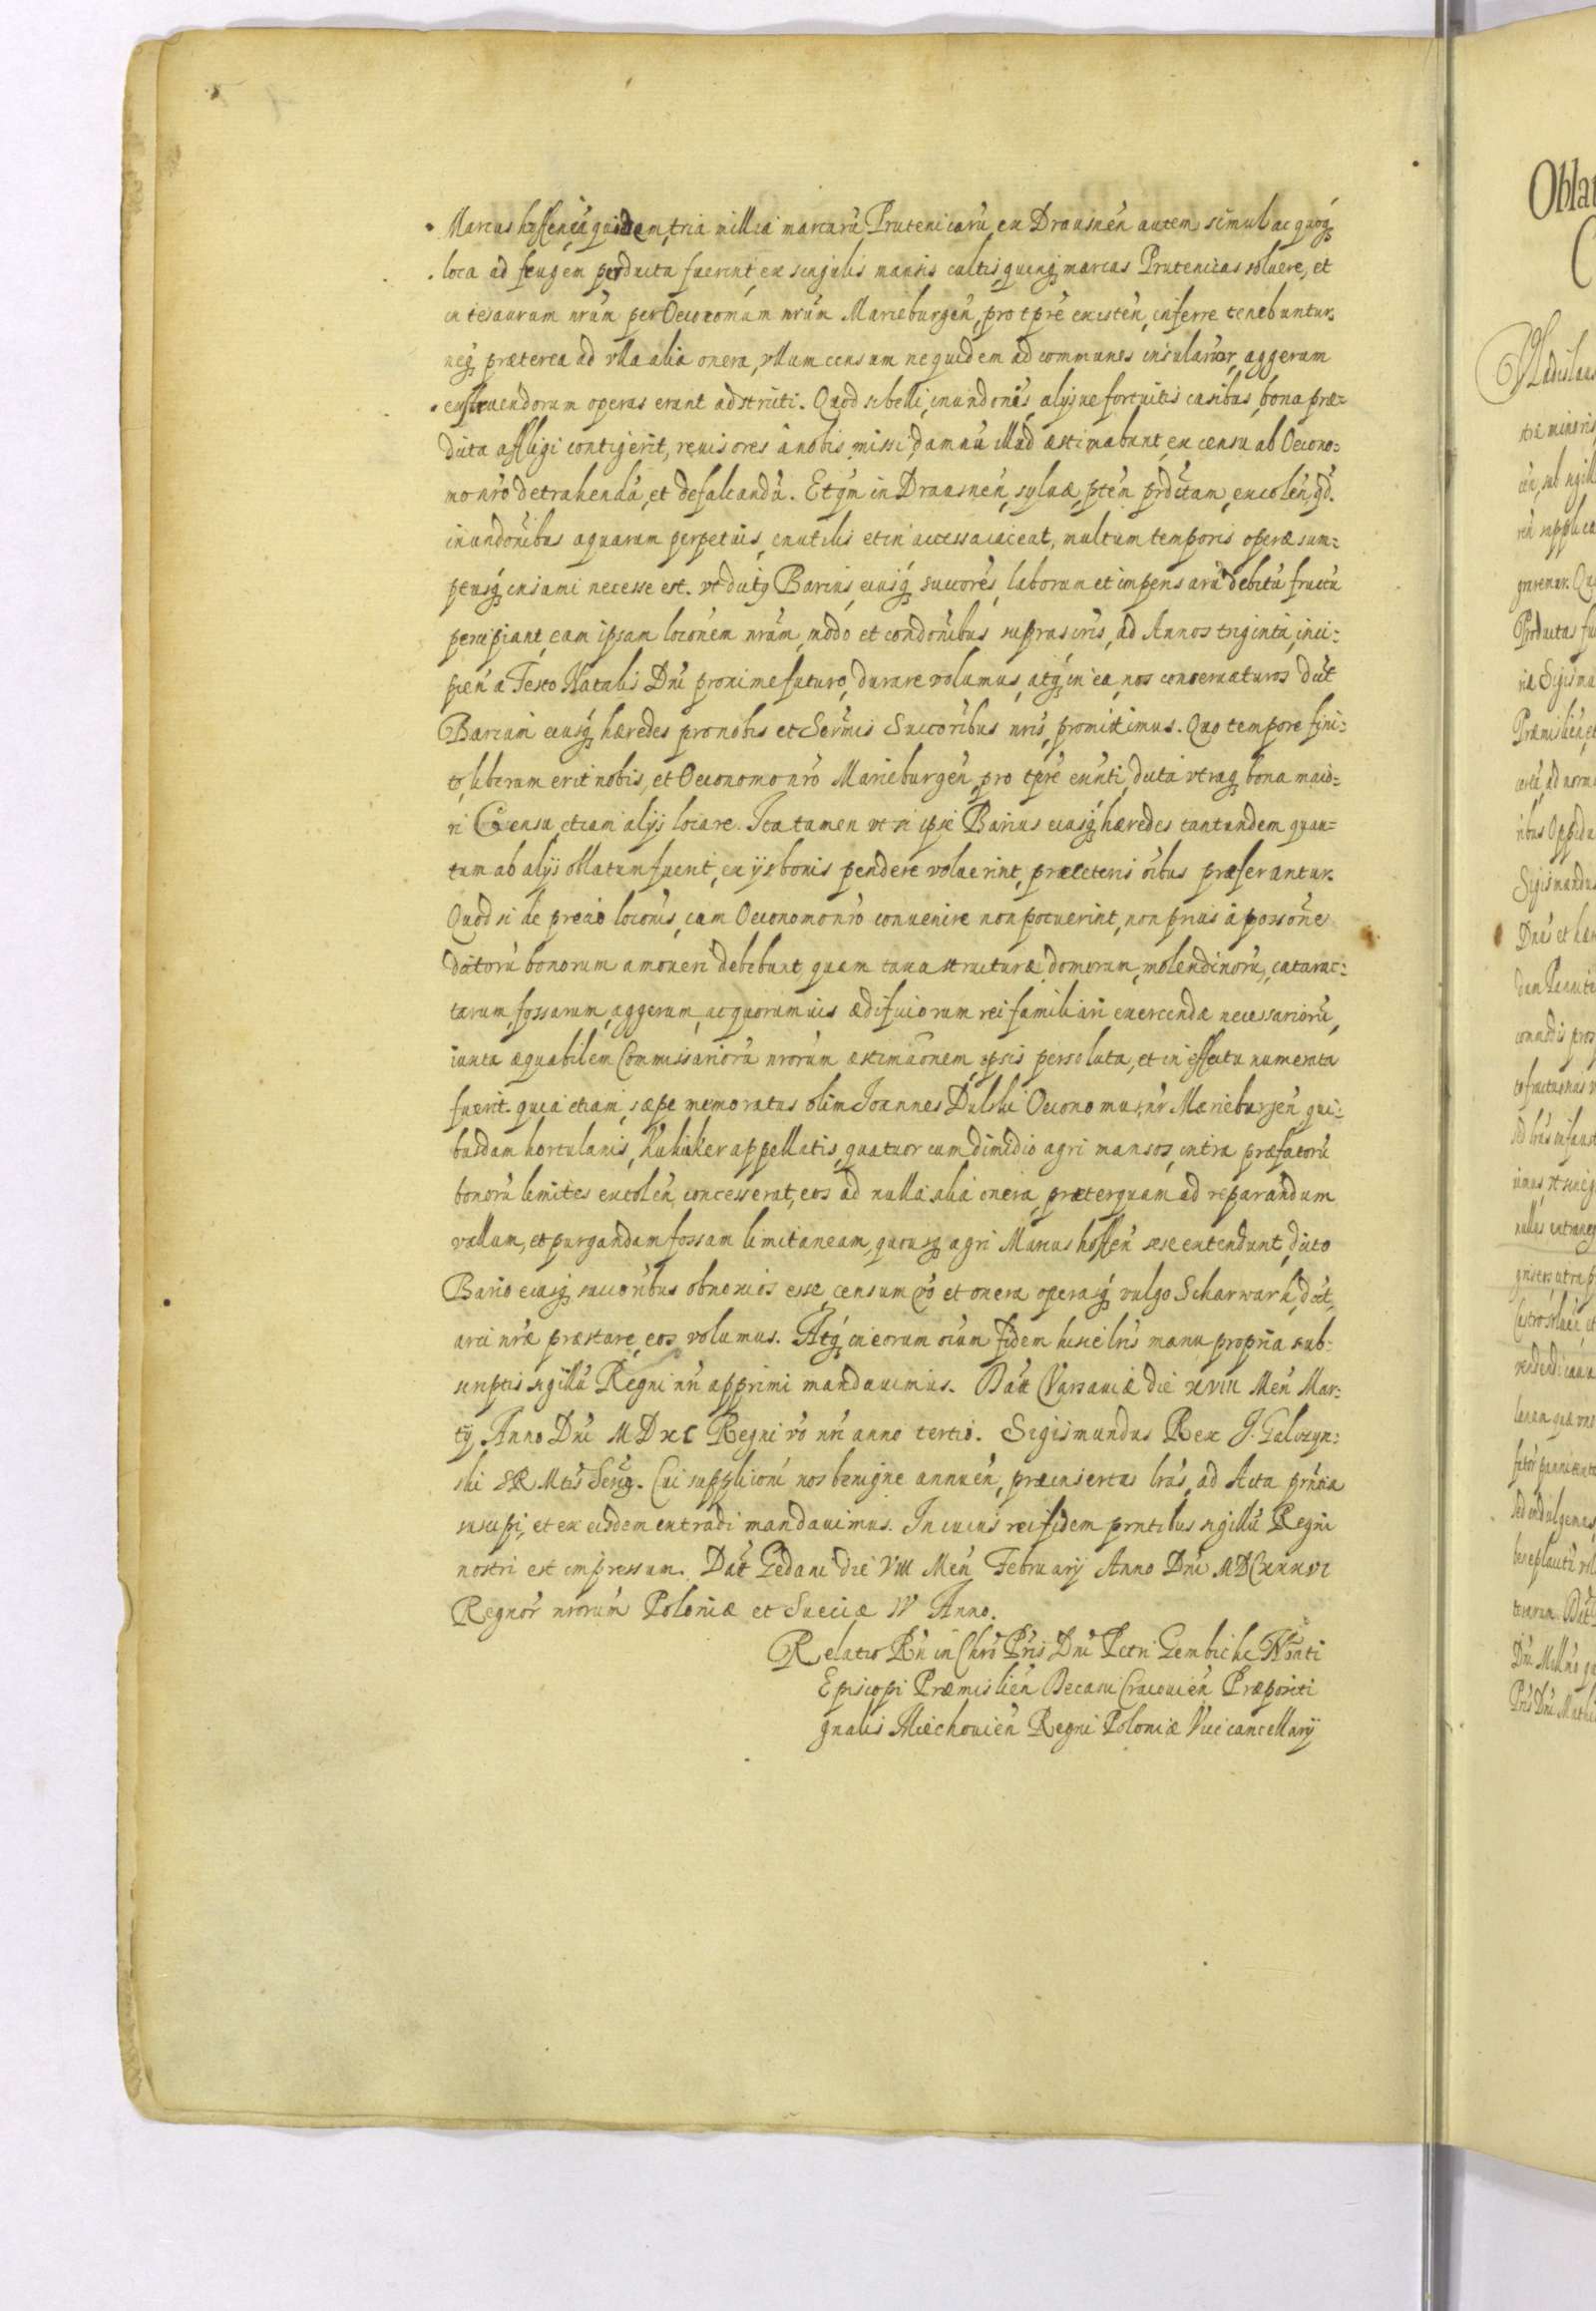 Marcushoffen cu quidem, tria millia marcarū Prutenicarū, ex Drausneñ autem simul ac quoq;
loca ad frugem perducta fuerint, ex singulis mansis cultis, quinq; marcas Prutenicas soluere, et
in tesaurum nrūm per Oeconomum nrūm Marieburgeñ, pro tpre existeñ, inferre tenebuntur.
neq; præterea ad vlla alia onera, vllum censum ne quidem ad communes insularūm, aggerum
extruendorum operas erunt adstricti. Quod si belli, inundonis, alijsue fortuitis casibus, bona præ-
dicta affligi contigerit, reuisores à nobis missi, damnū illud æstimabunt, ex censu ab Oecono-
mo nrō detrahendū, et defalcandū. Et qm in Drausneñ, syluæ, pteñ prdictam, excoleñ, qd.
inundonibus aquarum perpetuis, inutilis et in accessa iaceat, multum temporis operæ sum-
ptusq; insumi necesse est. vt dictq Barius, eiusq; succores, laborum et impensarū debitū fructū
percipiant, eam ipsam locōnem nrām, modo et condonibus suprascris, ad Annos triginta, inci-
pieñ a Festo Natalis Dni proxime futuro, durare volumus, atq; in ea, nos conseruaturos dict
Barium eiusq; hæredes pro nobis et Sermis Succoribus nris, promittimus. Quo tempore fini-
to, liberum erit nobis, et Oeconomo nrō Marieburgeñ, pro tpre exnti, dicta vtraq; bona maio-
ri Censu, etiam alijs locare. Ita tamen vt si ipse Barius eiusq; hæredes tantundem quan-
tum ab alijs oblatum fuerit, ex ijs bonis pendere voluerint, præ ceteris oibus præferantur.
Quod si de precio locōnis, cum Oeconomo nrō conuenire non potuerint, non prius à possone
dictorū bonorum amoueri debebunt, quam taxa structuræ domorum, molendinorū, catarac-
tarum, fossarum, aggerum, ac quorumuis ædificiorum rei familiari exercendæ necessariorū,
iuxta æquabilem Commissariorū nrorūm æstimaonem, ipsis persoluta, et in effectu numerata
fuerit. quia etiam, sæpe memoratus olim Ioannes Dulski Oeconomus nr Marieburgeñ qui-
busdam hortulanis, Kuhiker appellatis, quatuor cum dimidio agri mansos, intra præfatorū
bonorū limites excoleñ, concesserat, eos ad nulla alia onera, præterquam ad reparandum
vallum, et purgandam fossam limitaneam, quousq; agri Marcushoffeñ sese extendunt, dicto
Bario eiusq; succoribus obnoxios esse, censum vō et onera operasq; vulgo Scharwark, dict,
arci nræ præstare, eos volumus. Atq; in eorum oium fidem hisce lris manu propria sub-
scriptis sigillū Regni nri apprimi mandauimus. Dat Varsauiæ die XVIII Meñ Mar-
tij, Anno Dni MDXC Regni vō nri anno tertio. Sigismundus Rex J. Gelczyn-
ski SR Mtis Secrq. Cui supplicioni nos benigne annueñ, præinsertas lras, ad Acta prntia
suscipi, et ex eisdem extradi mandauimus. In cuius rei fidem prntibus sigillū Regni
nostri est impressum. Dat Gedani die VIII Meñ February Anno Dni MDCXXXVI
Regnor nrorum Poloniæ et Sueciæ IV Anno.
Relatio Rn in Chro Pris Dni Petri Gembicki Noati
Episcopi Præmislieñ Decani Cracouieñ Præpositi
gnalis Miechouieñ Regni Poloniæ Vicecancellarij